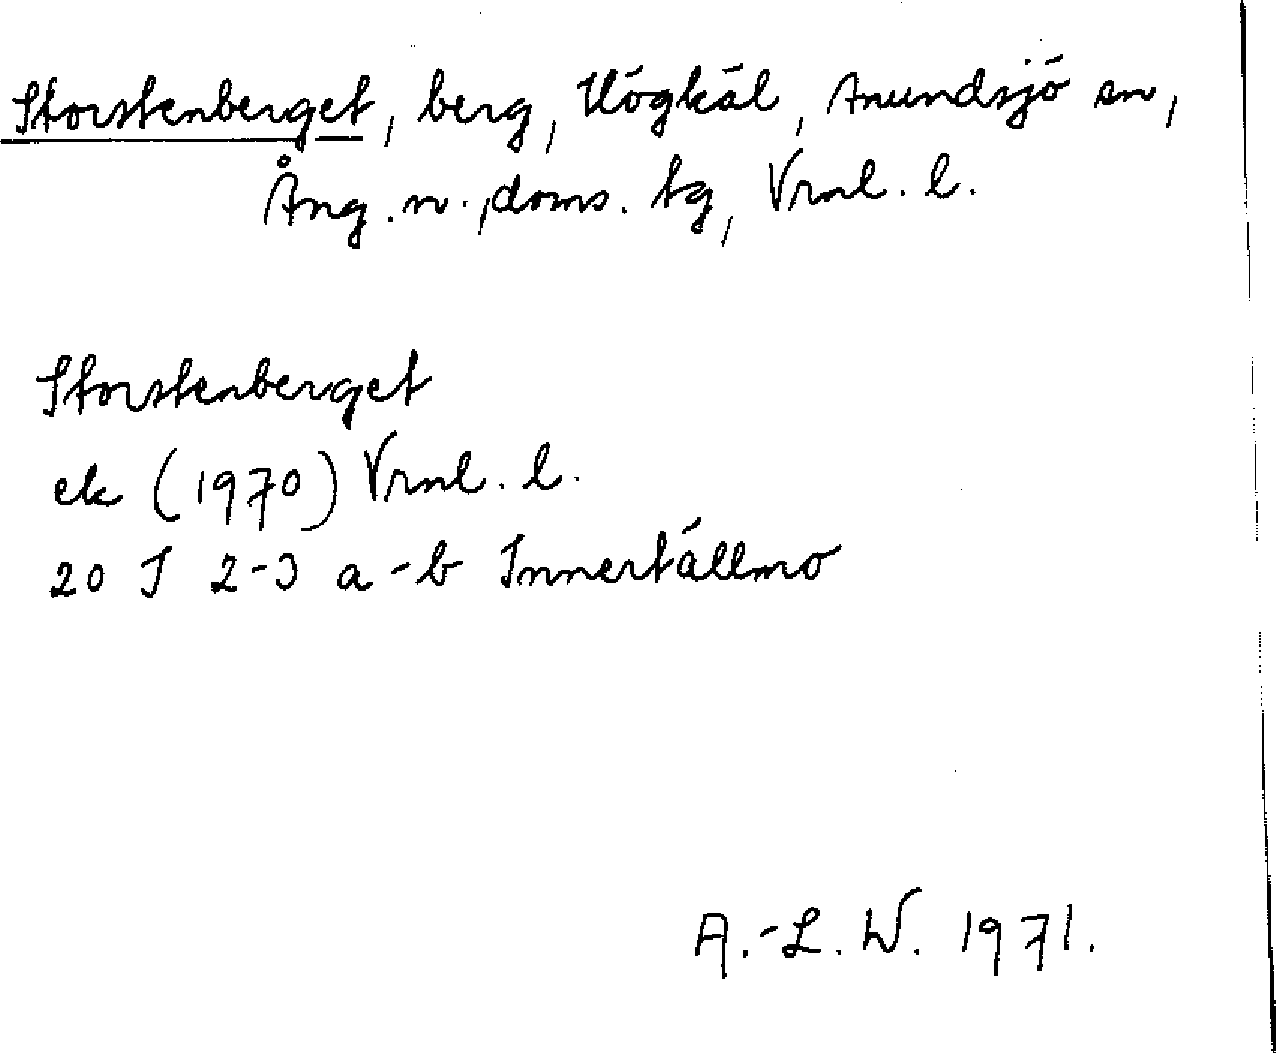 Storstenberget, berg, Högkäl, Anundsjö sn,
Ång. n., doms. tg, Vrnl. l.
Storstenberget
ek (1970) Vrnl. l.
20 I 2-3 a-b Innertällmo
A.-L. W. 1971.